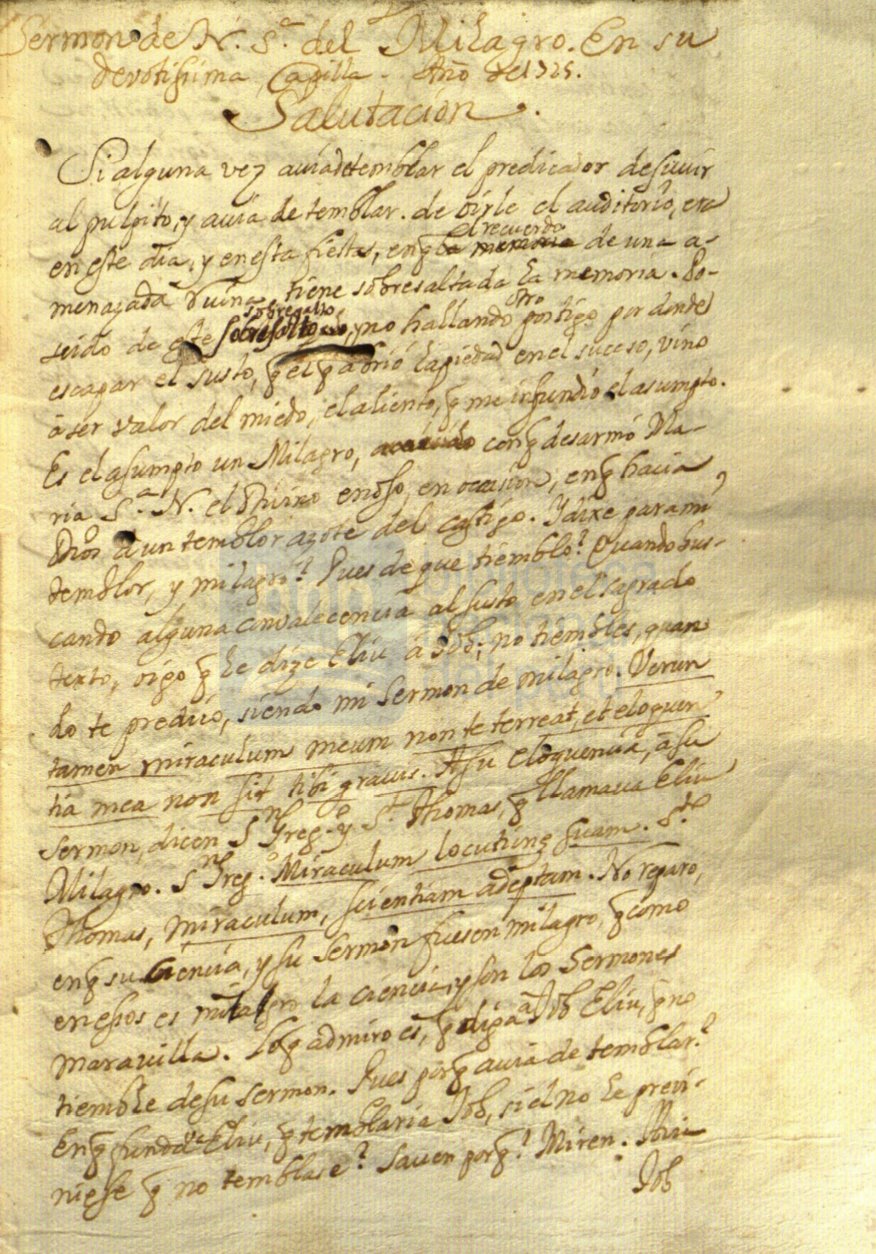 Sermon de N. Sª. del Milagro. En su
devotissima Capilla. Año de 1725.
Salutacion.
Si alguna vez avia de temblar el predicador de suvir
al pulpito, y avia de temblar de oirle el auditorio, era
en este dia, y en esta fiesta, en q̃ la memoria el recuerdo de una a-
menazada Ruina tiene sobresaltada la memoria. Po-
seido de este sobresalto sobresalto, y no hallando otro portigo por donde
escapar el susto, q̃ el q̃ abrió la piedad en el suceso, vino
á ser valor del miedo, el aliento, q̃ me infundió el asumpto.
Es el asumpto un Milagro, con q̃ desarmó Ma-
ria Sª. N. el Divino enojo, en ocasion, en q̃ hacia
Dios á un temblor azote del castigo. Y dixe para mi,
temblor, y milagro? Pues de que tiemblo? Quando bus-
cando alguna convalecencia al susto en el Sagrado
texto, oigo q̃ le dize Eliu á Job: no tiembles, quan
do te predico, siendo mi Sermon de milagro. Verun
tamen miraculum meum non te terreat, et eloquen
tia mea non sit tibi gravis. A su eloquencia, á su
Sermon, dicen Sn. Greg.º y Sto. Thomas, q̃ llamava Eliu
Milagro. Sn. Greg.º Miraculum locutins suam. Sto.
Thomas, miraculum, scientiam adeptam. No reparo,
en q̃ su ciencia, y su Sermon fuesen milagro, q̃ como
en esos es milagro la ciencia, y son los Sermones
maravilla. Lo q̃ admiro es, q̃ diga á Job Eliu, q̃ no
tiemble de su sermon. Pues por q̃ avia de temblar?
En q̃ funda Eliu, q̃ temblaria Job, si el no le previ-
niese q̃ no temblase? Saven por q̃? Miren.
Job
biblioteca
nacional
del perú
bnp